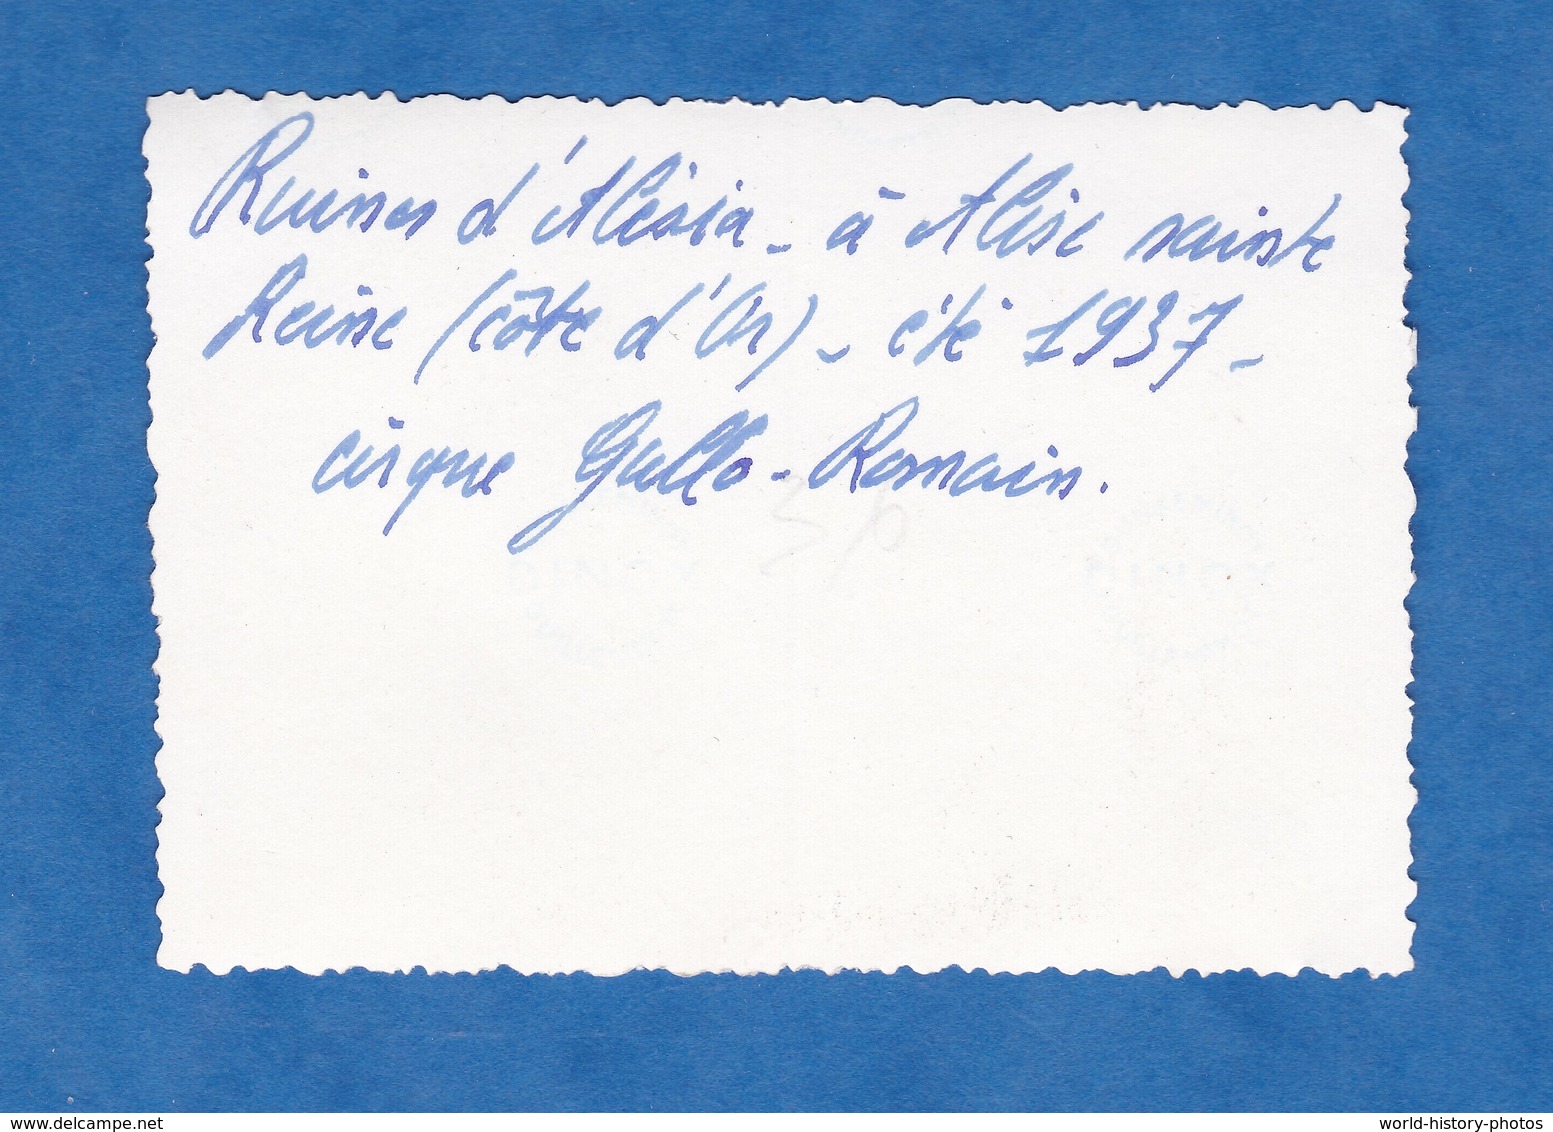 Ruines d'Alésia - à Alise sainte
Reine (côte d'Or) - été 1937 -
cirque Gallo-Romain.
36
delcampe.net
world-history-photos